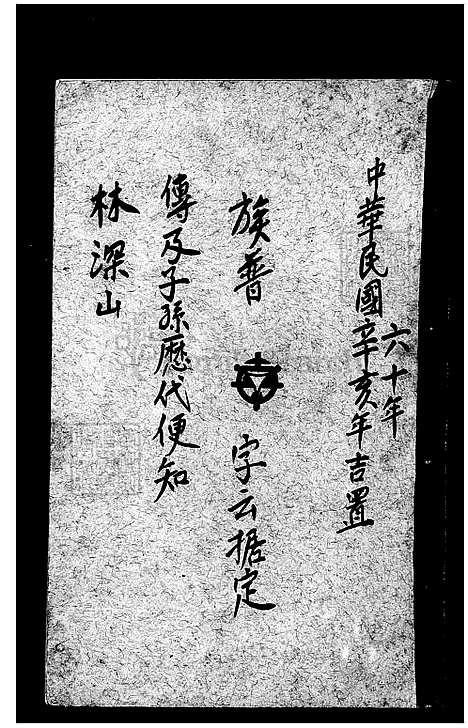 中華民國辛亥年吉置
六十年
族普 字云据定
傳及子孫歷代便知
林深山